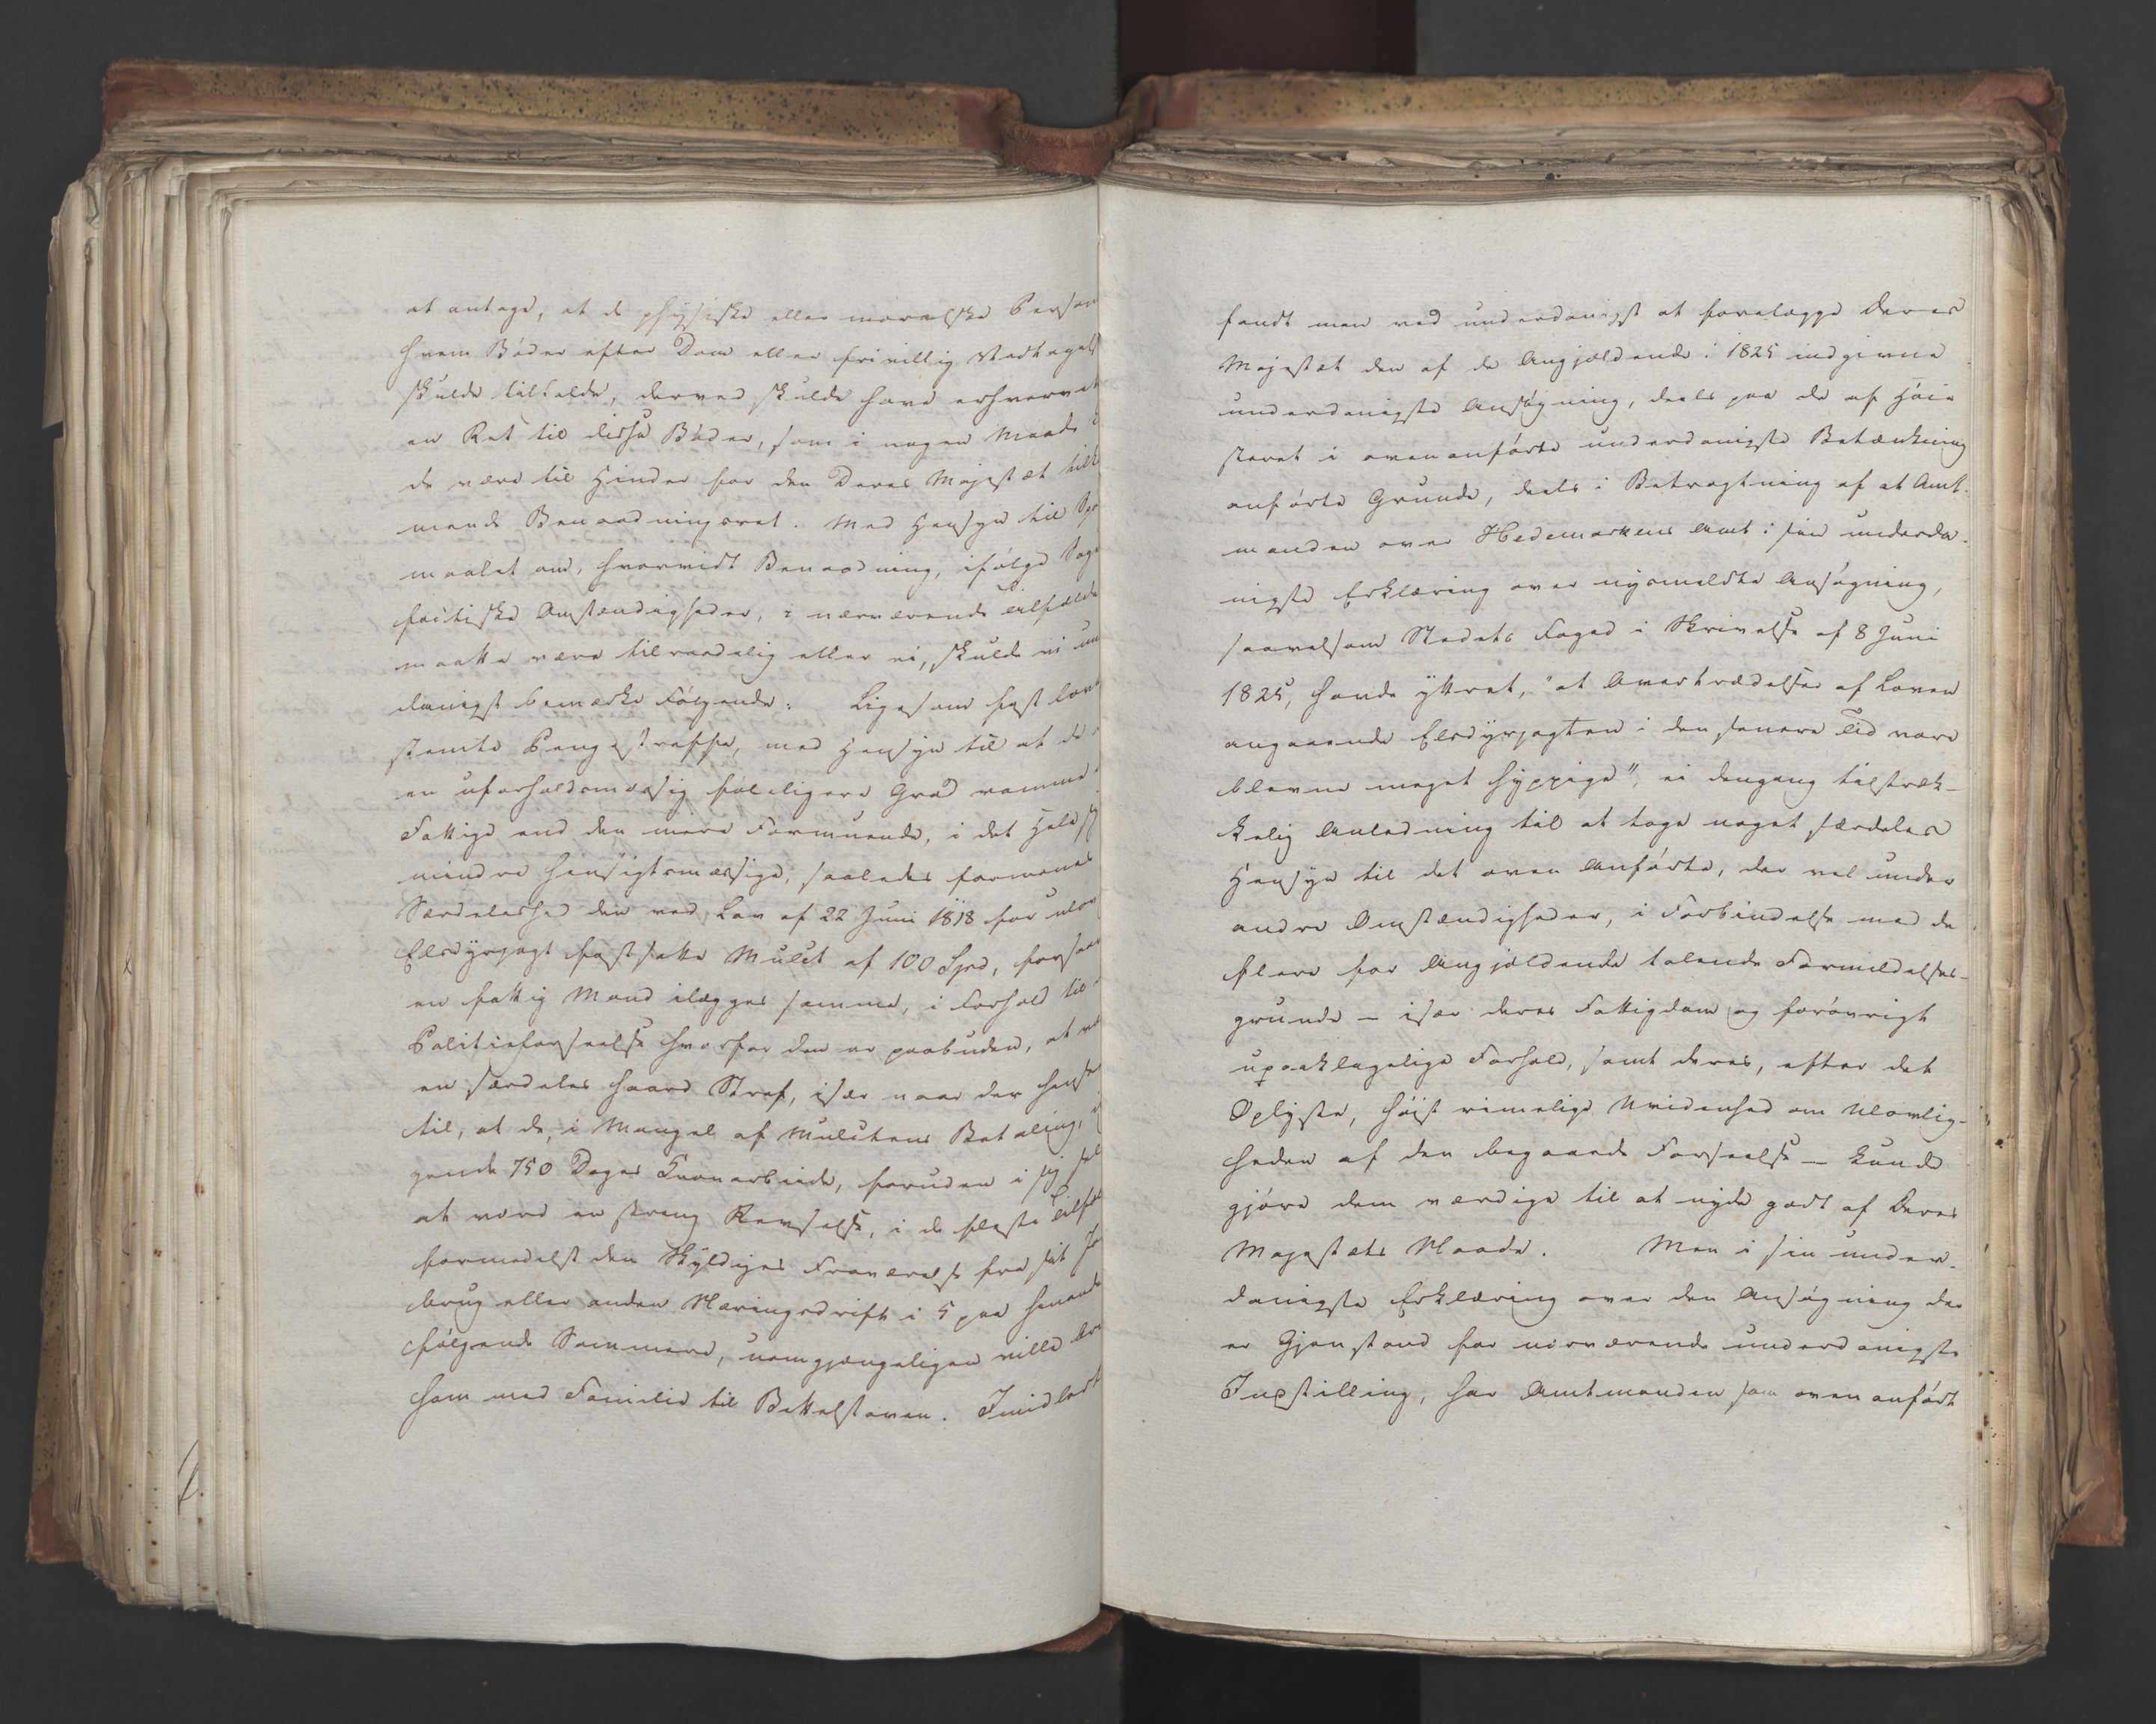 at antage, at de physiske eller moralske Person
hvem Bøder efter Dom eller frivillig Vedtagels
skulde tilfalde, derved skulde have erhvervet
en Ret til disse Bøder, som i nogen Maade
de være til Hinder for den Deres Majestæt tilk
mende Benaadningsret. Med Hensyn til Spø
maalet om, hvorvidt Benaadning, ifølge Sage
factiske Omstændigheder, i nærværende Tilfælde
maatte være tilraadelig eller ei, skulde vi un
danigst bemærke Følgende: Ligesom fast lov
stemte Pengestraffe, med Hensyn til at de
en uforholdsmæssig føleligere Grad ramme
Fattige end den mere Formuende, i det Hele
mindre hensigtsmæssige, saaledes formenes
Særdeleshed den ved Lov af 22 Juni 1818 for ulov
Elsdyrjagt fastsatte Mulct af 100 Spd, forsaa
en fattig Mand ilægges samme, i Forhold til
Politieforseelse hvorfor den er paabuden, at væ
en særdeles haard Straf, især naar der hense
til, at de, i Mangel af Mulctens Betaling,
gende 750 Dages Tvangarbeide, foruden i sig sel
at være en streng Revselse, i de fleste Tilfæl
formedelst den Skyldiges Fraværelse fra sit Jo
brug eller anden Næringsdrift i 5 paa hinande
følgende Sommere, uomgjængeligen ville br
ham med Familie til Bettelstaven. Imidlert
fandt man ved underdanigst at forelægge Deres
Majestæt den af de Angjældende i 1825 indgivne
underdanigste Ansøgning, deels paa de af Høie
steret i ovenanførte underdanigste Betænkning
anførte Grunde, deels i Betragtning af at Amt-
manden over Hedemarkens Amt i sin underda-
nigste Erklæring over nysmeldte Ansøgning,
saavelsom Stedets Foged i Skrivelse af 8 Juni
1825, havde yttret, "at Overtrædelser af Loven
angaaende Elsdyrjagten i den senere Tid vare
blevne meget hyppige", ei dengang tilstræk-
kelig Anledning til at tage noget særdeles
Hensyn til det oven Anførte, der vel under
andre Omstændigheder, i Forbindelse med de
flere for Angjældende talende Formildelses-
grunde – især deres Fattigdom og forøvrigt
upaaklagelige Forhold, samt deres, efter det
Oplyste, høist rimelige Uvidenhed om Ulovlig-
heden af den begaaede Forseelse – kunde
gjøre dem værdige til at nyde godt af Deres
Majestæts Naade. Men i sin under-
danigste Erklæring over den Ansøgning der
er Gjenstand for nærværende underdanigste
Indstilling, har Amtmanden som ovenanført